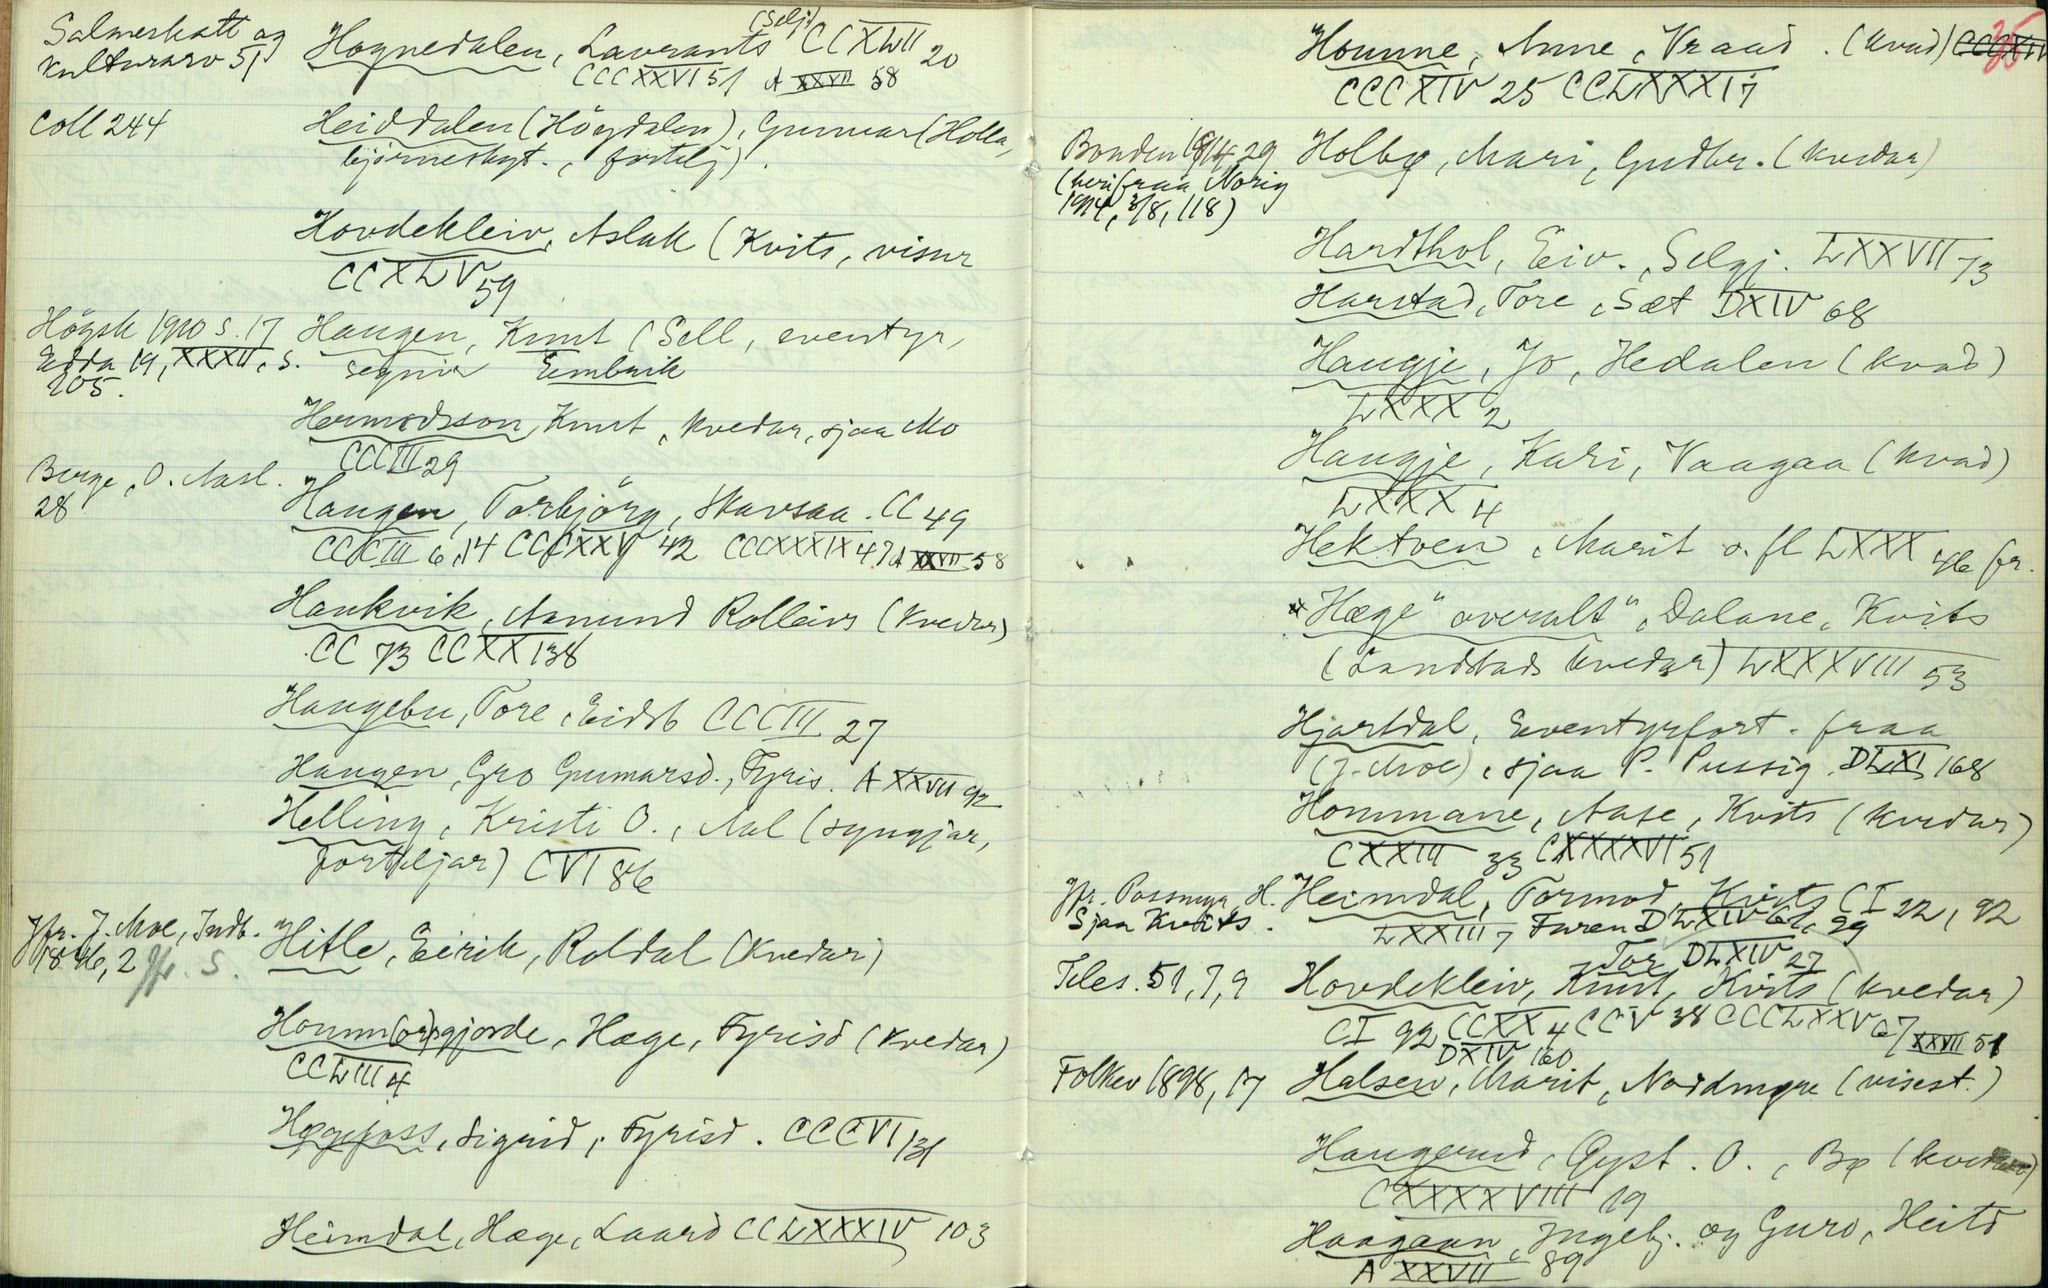 Salmeskatt og
kulturarv 51
Hognedalen, Lavrants (Selj) CCXLVII 20
CCCXXVI 51 A XXVII 58
Coll 244
Heiddalen (Högdalen), Gunnar (Holla,
bjørneskyt., fortelj).
Hovdekleiv, Aslak (Kvits, visur
CCXLV 59
Högsk 1910 s. 17
Edda 19, XXXII, s.
205.
Haugen, Knut (Sell, eventyr,
segnir Eimbrik
Hermodsson, Knut, kvedar, sjaa Mo
CCCIII 29
Berge, O. Aasl.
28
Haugen, Torbjörg, Skavsaa. CC 49
CCCIII 6, 14 CCCXXV 42 CCCXXXIX 47 A XXVII 58
Haukvik, Aanund Rolleivs (kvedar)
CC 73 CCXX 138
Haugebu, Tore, Eidsb CCCIII 27
Haugen, Gro Gunnarsd., Fyris. A XXVII 92
Helling, Kristi O., Aal (syngjar,
forteljar) CVI 86
Jfr. J. Moe, Indb.
1846, 2 Jfr. S.
Hitle, Eirik, Roldal (kvedar)
Homm(or)sgjorde, Hæge, Fyrisd (kvedar)
CCLIII 4
Høgefoss, Sigrid, Fyrisd. CCCVI 131
Heimdal, Hæge, Laard CCLXXXIV 103
35
Homme, Anne, Vraad. (kvad) CCCXIV
CCCXIV 25 CCLXXXI 7
Bonden 1914 29
(kveri fraa Norig
1914, 3/8, 118)
Holbø, Mari, Gudbr. (kvedar)
Hardthol, Eiv., Selgj. LXXVII 73
Harstad, Tore, Sæt DXIV 68
Haugje, Jo, Hedalen (kvad)
LXXX 2
Haugje, Kari, Vaagaa (kvad)
LXXX 4
Hektoen, Marit o. fl LXXX 46 fr.
* Hæge "overalt", Dalane, Kvits
(Landstads kvedar) LXXXVIII 53
Hjartdal, Eventyrfort. fraa
(J. Moe), sjaa P. Pussig. DLXI 168
Hommane, Aase, Kvits (kvedar)
CXXIII 33 CXXXXVI 51
Jfr. Possmyr, H.
Sjaa Kvits.
Heimdal, Tormod, Kvits CI 22, 92
LXXIII 7 Furen DLXIV 61, 29
Tor DLXIV 27
Teles. 51, 7, 9
Hovdekleiv, Knut, Kvits (kvedar)
CI 92 CCXX 4 CCV 38 CCCLXXV 67 XXVII 51
DXIV 160
Folkev 1898, 17
Halsen, Marit, Nordmøre (visest.)
Haugerud, Øyst. O., Bø (kvedar)
CXXXXVIII 19
Haagaan, Ingebj. og Guro, Heitd
A XXVII 89